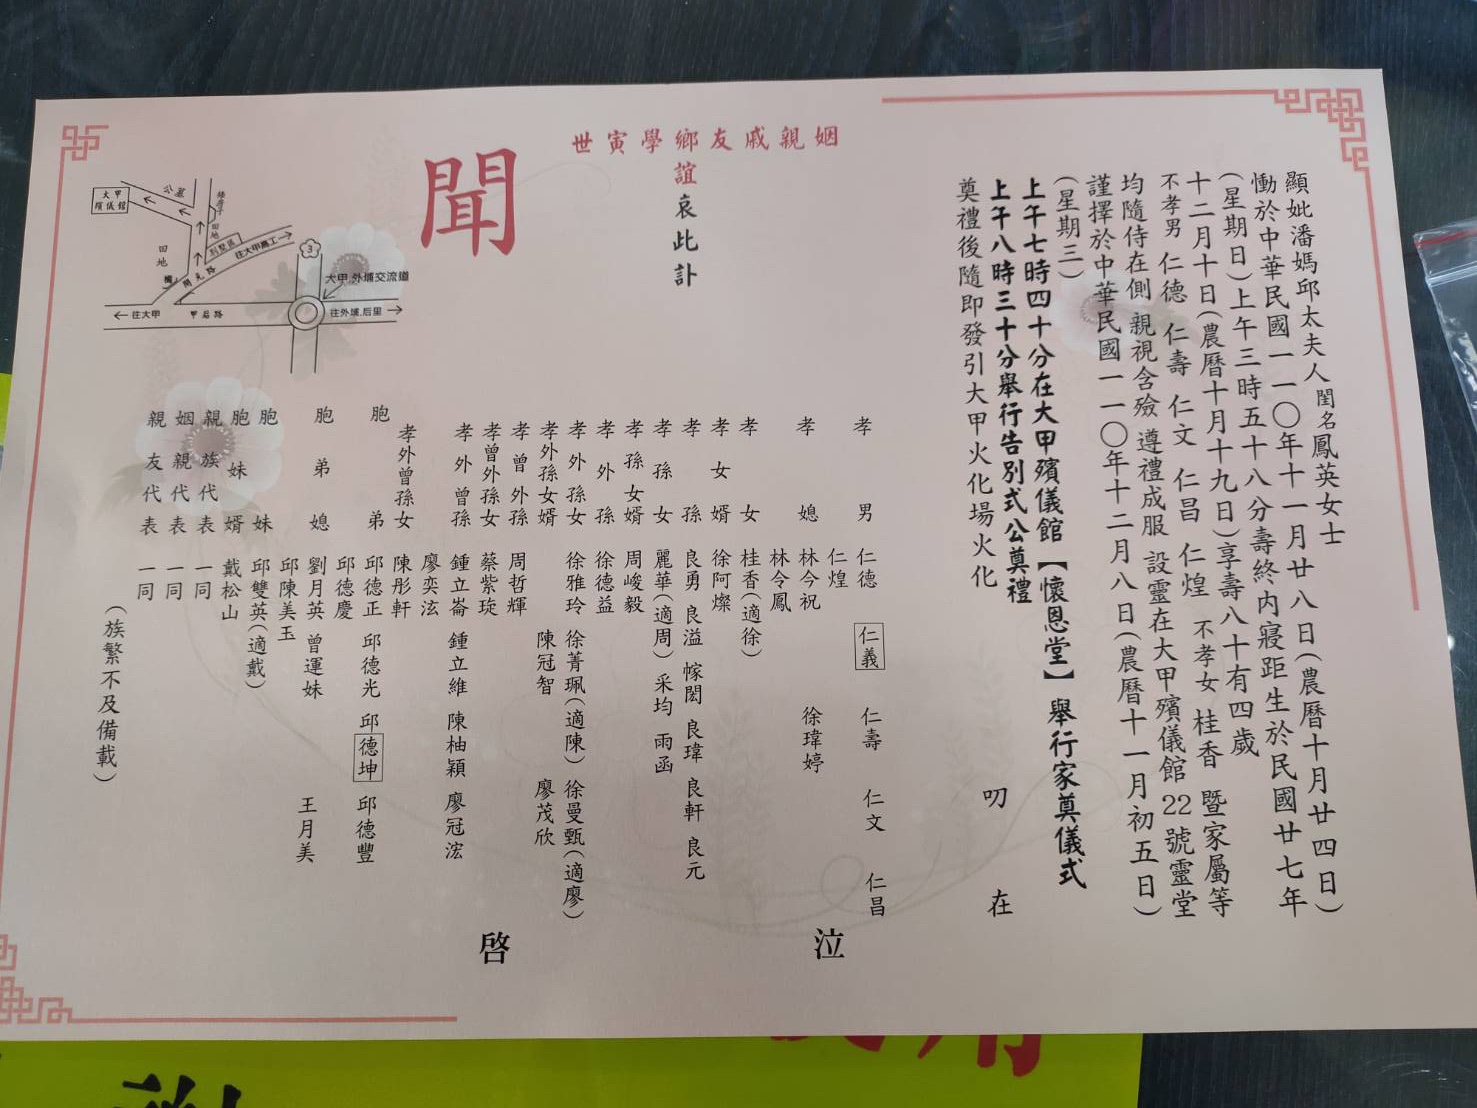 顯妣潘媽邱太夫人閨名鳳英女士
慟於中華民國一一〇年十一月廿八日(農曆十月廿四日)
(星期日)上午三時五十八分壽終內寢距生於民國廿七年
十二月十日(農曆十月十九日)享壽八十有四歲
不孝男 仁德 仁壽 仁文 仁昌 仁煌 不孝女 桂香 暨家屬等
均隨侍在側 親視含殮 遵禮成服 設靈在大甲殯儀館22號靈堂
謹擇於中華民國一一〇年十二月八日(農曆十一月初五日)
(星期三)
上午七時四十分在大甲殯儀館【懷恩堂】舉行家奠儀式
上午八時三十分舉行告別式公奠禮
奠禮後隨即發引大甲火化場火化
叨在
姻親戚友鄉學寅世
誼哀此訃
聞
孝男 仁德 仁義 仁壽 仁文 仁昌
仁煌
孝媳 林今祝 徐瑋婷
林令鳳
孝女 桂香(適徐)
孝女婿 徐阿燦
孝孫 良勇 良溢 幏閎 良瑋 良軒 良元
孝孫女 麗華(適周) 采均 雨函
孝孫女婿 周峻毅
孝外孫 徐德益
孝外孫女 徐雅玲 徐菁珮(適陳) 徐曼甄(適廖)
孝外孫女婿 陳冠智 廖茂欣
孝曾外孫 周哲輝
孝曾外孫女 蔡紫琁
孝外曾孫 鍾立崙 鍾立維 陳柚穎 廖冠浤
廖奕泫
孝外曾孫女 陳彤軒
胞弟 邱德正 邱德光 邱德坤 邱德豐
邱德慶
胞弟媳 劉月英 曾運妹 王月美
邱陳美玉
胞妹 邱雙英(適戴)
胞妹婿 戴松山
親族代表 一同
姻親代表 一同
親友代表 一同
(族繁不及備載)
泣
啓
大甲
殯儀館
公墓
田地
往大甲高工
3
大甲.外埔交流道
往大甲
甲后路
往外埔.后里
開元路
謝